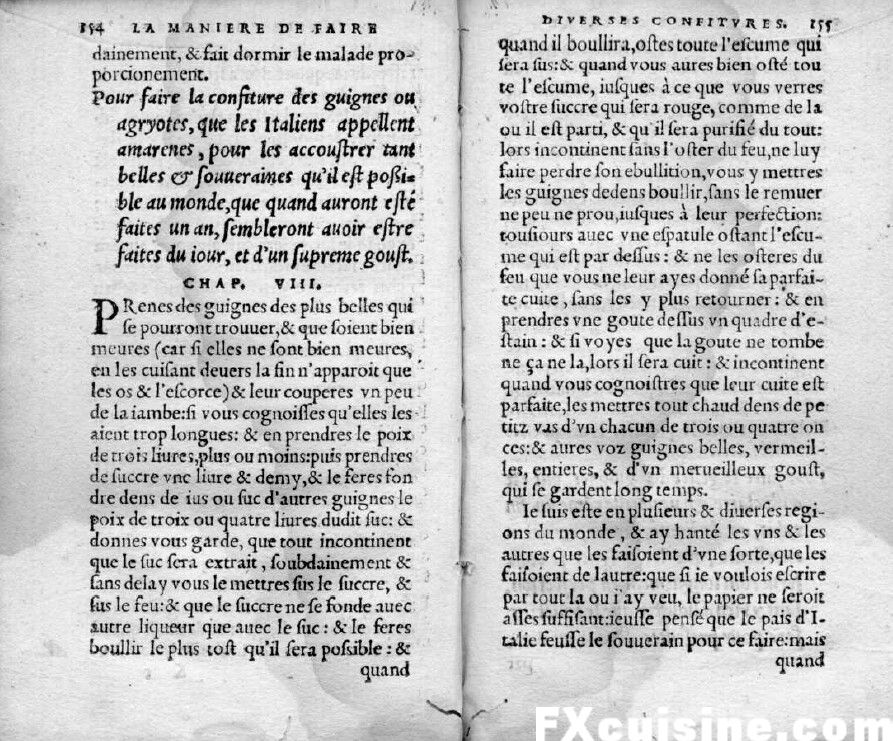 154 LA MANIERE DE FAIRE
dainement, & fait dormir le malade pro-
porcionement.
Pour faire la confiture des guignes ou
agryotes, que les Italiens appellent
amarenes, pour les accoustrer tant
belles & souueraines qu'il est possi-
ble au monde, que quand auront esté
faites un an, sembleront auoir estre
faites du iour, et d'un supreme goust.
CHAP. VIII.
PRenes des guignes des plus belles qui
se pourront trouuer, & que soient bien
meures (car si elles ne sont bien meures,
en les cuisant deuers la fin n'apparoit que
les os & l'escorce) & leur couperes vn peu
de la iambe: si vous cognoisses qu'elles les
aient trop longues: & en prendres le poix
de trois liures, plus ou moins: puis prendres
de succre vne liure & demy, & le feres fon
dre dens de ius ou suc d'autres guignes le
poix de troix ou quatre liures dudit suc: &
donnes vous garde, que tout incontinent
que le suc sera extrait, soubdainement &
sans delay vous le mettres sus le succre, &
sus le feu: & que le succre ne se fonde auec
autre liqueur que auec le suc: & le feres
boullir le plus tost qu'il sera possible: &
quand
DIVERSES CONFITVRES. 155
quand il boullira, ostes toute l'escume qui
sera sus: & quand vous aures bien osté tou
te l'escume, iusques à ce que vous verres
vostre succre qui sera rouge, comme de la
ou il est parti, & qu'il sera purifié du tout:
lors incontinent sans l'oster du feu, ne luy
faire perdre son ebullition, vous y mettres
les guignes dedens boullir, sans le remuer
ne peu ne prou, iusques à leur perfection:
tousiours auec vne espatule ostant l'escu-
me qui est par dessus: & ne les osteres du
feu que vous ne leur ayes donné sa parfai-
te cuite, sans les y plus retourner: & en
prendres vne goute dessus vn quadre d'e-
stain: & si voyes que la goute ne tombe
ne ça ne la, lors il sera cuit: & incontinent
quand vous cognoistres que leur cuite est
parfaite, les mettres tout chaud dens de pe
titz vas d'vn chacun de trois ou quatre on
ces: & aures voz guignes belles, vermeil-
les, entieres, & d'vn merueilleux goust,
qui se gardent long temps.
Ie suis este en plusieurs & diuerses regi-
ons du monde, & ay hanté les vns & les
autres que les faisoient d'vne sorte, que les
faisoient de lautre: que si ie voulois escrire
par tout la ou i'ay veu, le papier ne seroit
asses suffisant: ieusse pensé que le pais d'I-
talie feusse le souuerain pour ce faire: mais
quand
FXcuisine.com